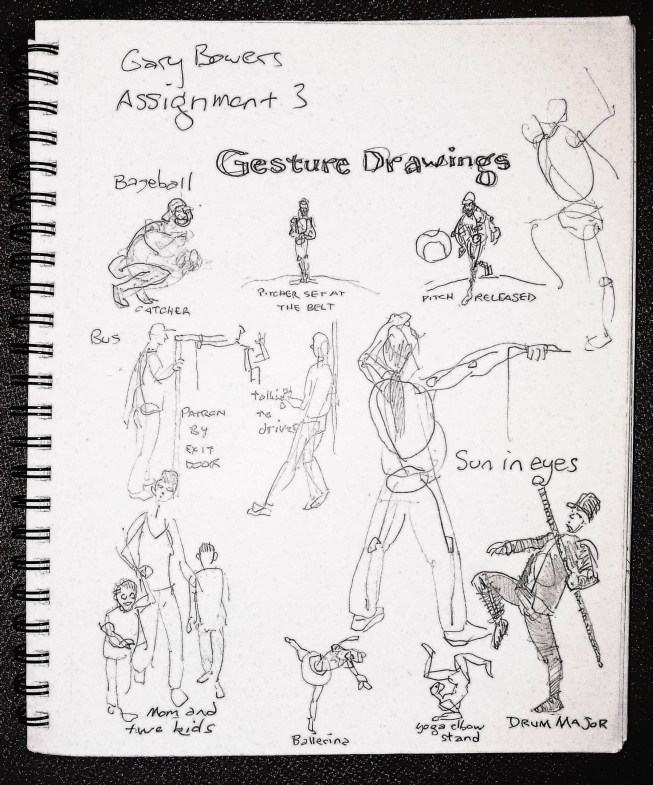 Gary Bowers
Assignment 3
Gesture Drawings
Baseball
CATCHER
PITCHER SET AT
THE BELT
PITCH RELEASED
BUS
PATRON
BY
EXIT
DOOR
talking
to
driver
Sun in eyes
Mom and
two kids
Ballerina
yoga elbow
stand
DRUM MAJOR